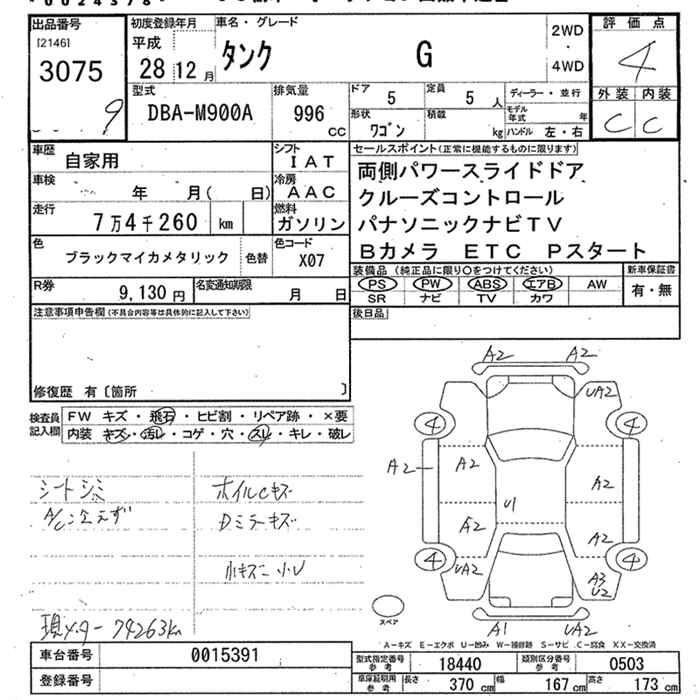 出品番号
[2146]
3075
9
初度登録年月
平成
28 12 月
車名・グレード
タンク G
2WD
・
4WD
評価点
4
外装 内装
C C
型式
DBA-M900A
排気量
996
CC
ドア
5
定員
5 人
形状
ワゴン
積載
kg
ディーラー・並行
モデル
年式 年
ハンドル 左・右
車歴
自家用
シフト
IAT
車検
年 月( 日)
冷房
AAC
走行
7万4千260 km
燃料
ガソリン
色
ブラックマイカメタリック
色替
色コード
X07
R券
9,130 円
名変通知期限
月 日
セールスポイント(正常に機能するものに限ります)
両側パワースライドドア
クルーズコントロール
パナソニックナビTV
Bカメラ ETC Pスタート
装備品 (純正品に限り〇をつけてください)
PS PW ABS エアB AW
SR ナビ TV カワ
新車保証書
有・無
後日品
注意事項申告欄(不具合内容等は具体的に記入して下さい)
修復歴 有〔箇所 〕
検査員
記入欄
FW キズ・飛石・ヒビ割・リペア跡・×要
内装 キズ・汚レ・コゲ・穴・スレ・キレ・破レ
シートシミ
ホイルcキズ
Dミラーキズ
小キズ 小U
現メーター 74263km
A2 A2
UA2
4 4
A2
A2
A2
U1
A2
A2
4 4
UA2
A3
U2
A1 UA2
スペア
A-キズ E-エクボ U-凹み W-補修跡 S-サビ C-腐食 XX-交換済
車台番号
0015391
登録番号
型式指定番号
参考
18440
類別区分番号
参考
0503
車庫証明用
参考
長さ 370 cm
幅 167 cm
高さ 173 cm